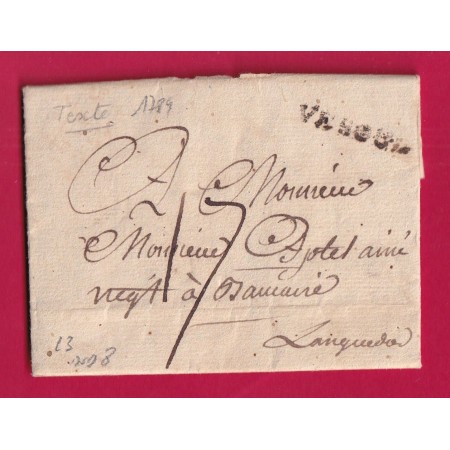 Texte 1789
VESOUL
A Monsieur
17
Monsieur Ajotel ainé
negt à Baucaire
Languedoc
L3
n° 8